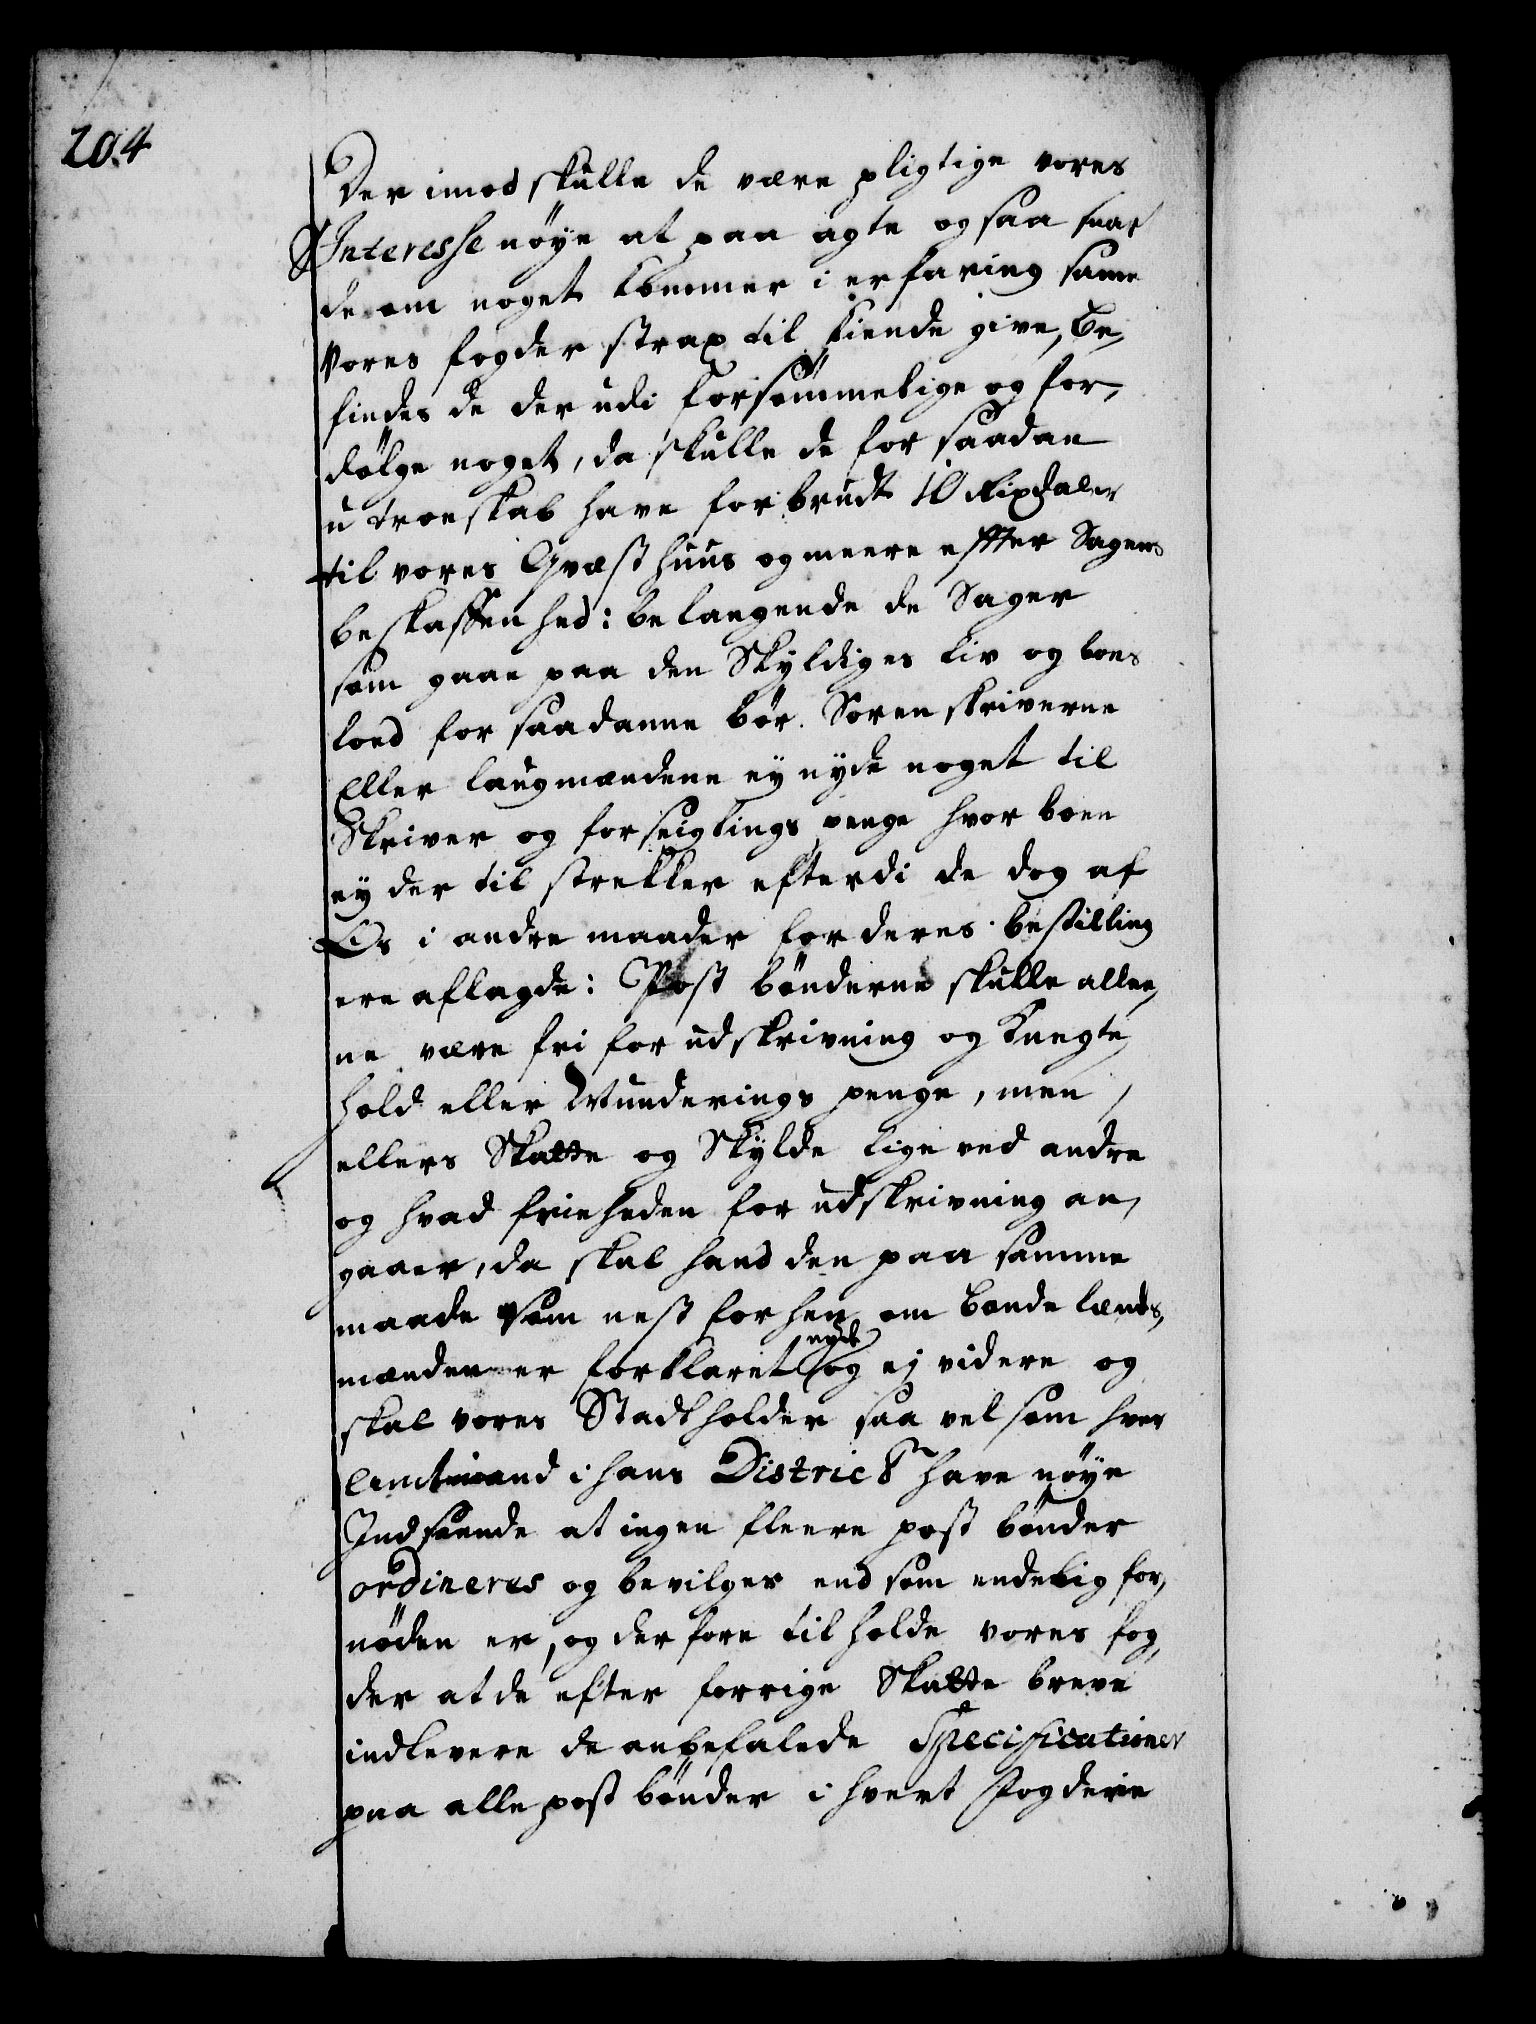 204
Der imod skulle de være pligtige vores
Interesse nöye at paa agte og saa snart
de om noget kommer i erfaring same
vores fogder strax til kiende give, be,
findes de der udi forsömmelige og for,
dölge noget, da skulle de for saadan
u troeskab have forbrudt 10 Rixdaler
til vores Qvæsthuus og meere effter Sagens
beskaffenhed: belangende de Sager
som gaae paa den Skyldiges liv og boes
lod for saadanne bör Sorenskriverne
Eller laugmændene ey nyde noget til
Skriver og forseiglings penge hvor boen
ey der til strekker efterdi de dog af
Os i andre maader for deres bestilling
ere aflagde: Post bönderne skulle allee,
ne være fri for udskrivning og Knegte
hold eller Munderings penge, men
ellers Skatte og Skylde lige ved andre
og hvad friheden for udskrivning an,
gaaer, da skal hand den paa samme
maade som nest forhen om bonde lænds,
mænden er forklaret nyde og ej videre og
skal vores Stadtholder saa vel som hver
Amtmand i hans District have nöye
Indseende at ingen fleere post bönder
ordineres og bevilges end som endelig for,
nöden er, og der fore til holde vores fog,
der at de efter forrige Skatte breve
indlevere de anbefalede Specificationer
paa alle post bönder i hvert Fogderie